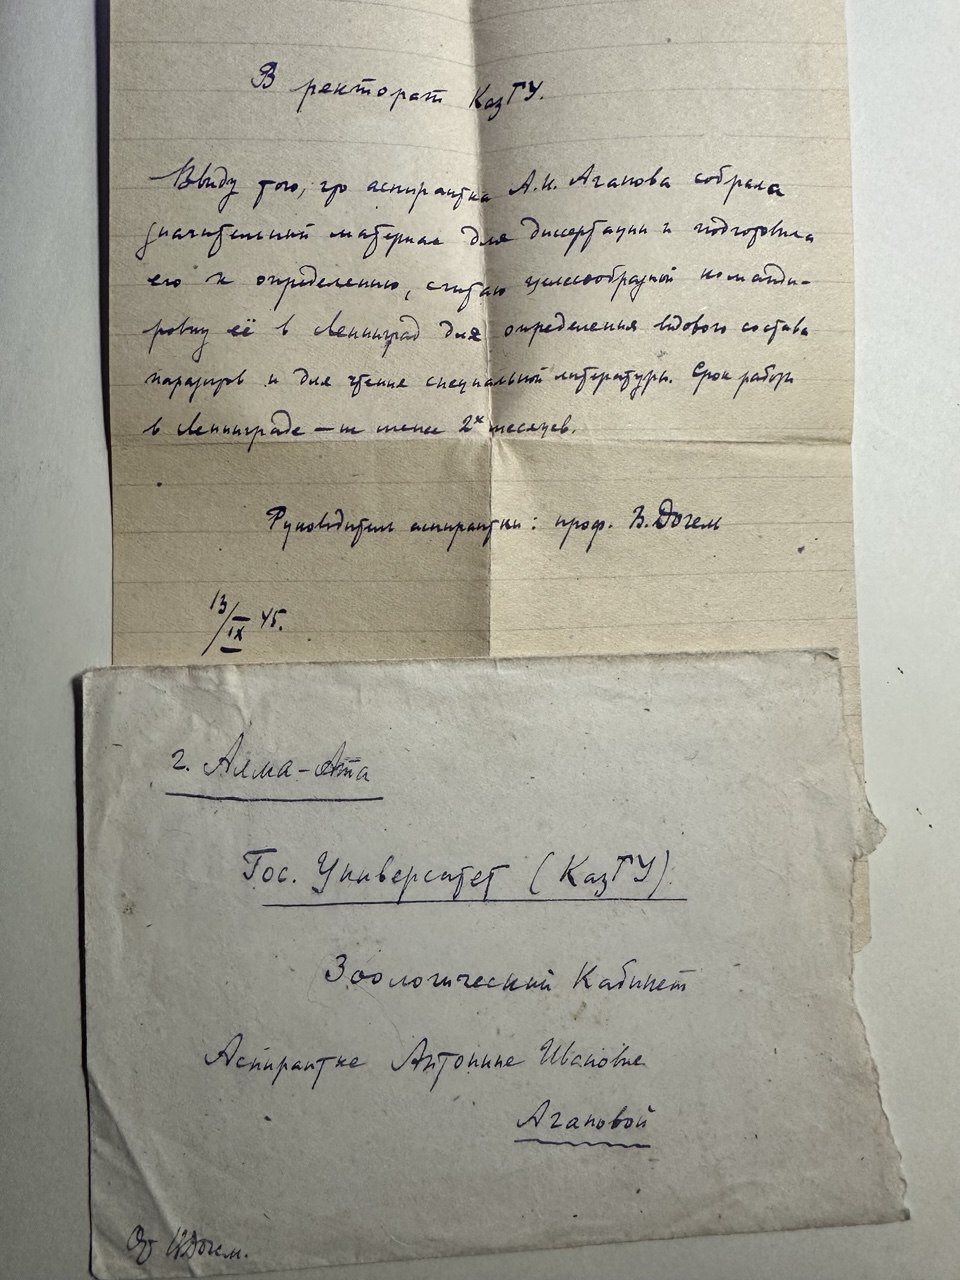 В ректорат КазГУ.
Ввиду того, что аспирантка А.И. Агапова собрала
значительный материал для диссертации и подготовила
его к определению, считаю целесообразной команди-
ровку её в Ленинград для определения видового состава
паразитов и для чтения специальной литературы. Срок работы
в Ленинграде – не менее 2х месяцев.
Руководитель аспирантки: проф. В. Догель
13/IX 45.
г. Алма-Ата
Гос. Университет (КазГУ).
Зоологический Кабинет
Аспирантке Антонине Ивановне
Агаповой
От В. Догель.